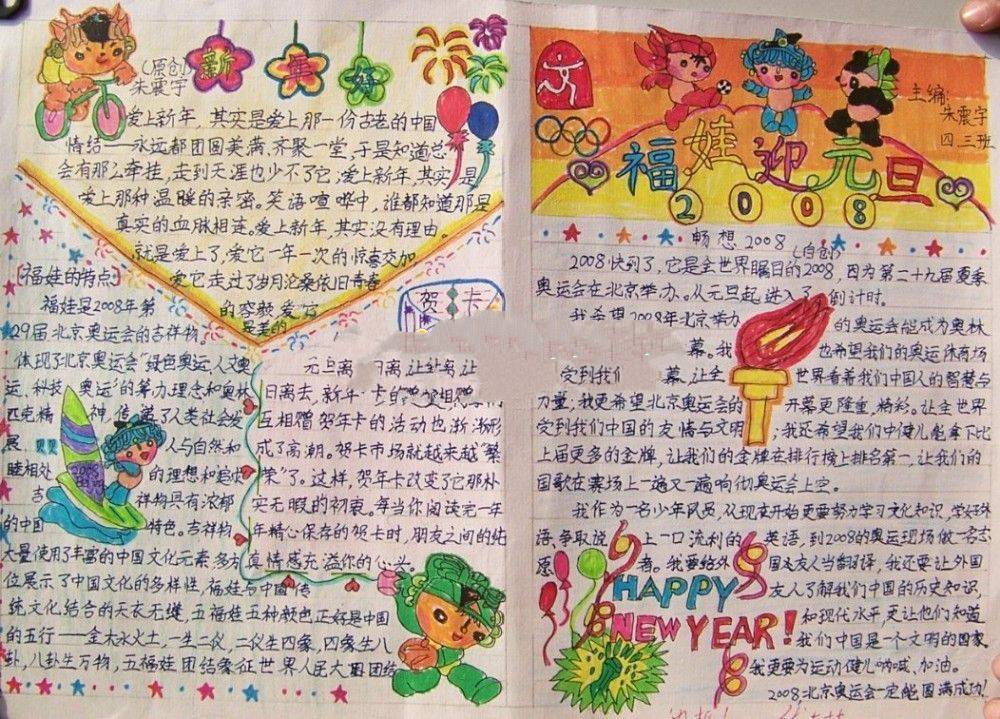 (原创)
朱震宇
新年好
爱上新年，其实是爱上那一份古老的中国
情结——永远都团圆美满，齐聚一堂，于是知道总
会有那么牵挂，走到天涯也少不了它；爱上新年，其实是
爱上那种温暖的亲密。笑语喧哗中，谁都知道那是
真实的血脉相连。爱上新年，其实没有理由。
就是爱上了，爱它一年一次的惊喜交加
爱它走过了岁月沧桑依旧青春
的容颜爱它
是美的
[福娃的特点]
福娃是2008年第
29届北京奥运会的吉祥物
体现了北京奥运会“绿色奥运、人文奥
运、科技奥运”的筹办理念和奥林
匹克精神，传递了人类社会发
展 人与自然和
睦相处 的理想和追求
吉 祥物具有浓郁
的中国 特色。吉祥物
大量使用了丰富的中国文化元素，多方
位展示了中国文化的多样性，福娃与中国传
统文化结合的天衣无缝，五福娃五种颜色正好是中国
的五行——金木水火土，一生二仪，二仪生四象，四象生八
卦，八卦生万物，五福娃团结象征世界人民大团团结
贺卡
元旦离
日离去，新年卡
互相赠贺年卡的活动也渐渐形
成了高潮。贺卡市场就越来越“繁
荣”了。这样，贺年卡改变了它那朴
实无暇的初衷。每当你阅读完一年
年精心保存的贺卡时，朋友之间的纯
真情感充溢你的心头。
主编：
朱震宇
四三班
福娃迎元旦
2008
畅想2008
(自创)
2008快到了，它是全世界瞩目的2008，因为第二十九届夏季
奥运会在北京举办。从元旦起进入了倒计时。
我希望2008年北京举办 的奥运会能成为奥林
幕。我 也希望我们的奥运体育场
受到我们 幕，让全 世界看着我们中国人的智慧与
力量，我更希望北京奥运会的 开幕更隆重，精彩。让全世界
受到我们中国的友情与文明，我还希望我们中健儿能拿下比
上届更多的金牌，让我们的金牌在排行榜上排名第一，让我们的
国歌在赛场上一遍又一遍响彻奥运会上空。
我作为一名少年队员，从现在开始更要努力学习文化知识，学好外
语，争取说上一口流利的英语，到2008的奥运现场做一名志
愿者。我要给外国友人当翻译，我还要让外国
友人了解我们中国的历史知识，
和现代水平，更让他们知道
我们中国是一个文明的国家。
我更要为运动健儿呐喊、加油。
2008北京奥运会一定能圆满成功！
HAPPY
NEW YEAR!